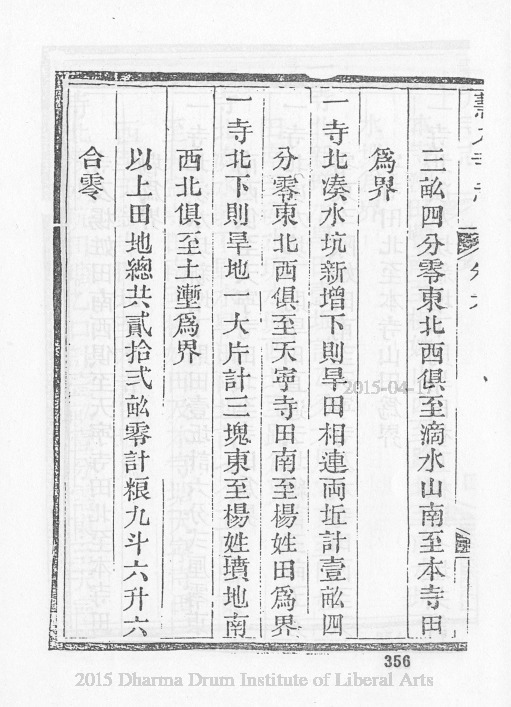 三畆四分零東北西俱至滴水山南至本寺田
爲界
一寺北湊水坑新增下則旱田相連両坵計壹畆四
分零東北西俱至天寧寺田南至楊姓田爲界
一寺北下則旱地一大片計三塊東至楊姓墳地南
西北俱至土壍爲界
以上田地總共貳拾弍畆零計粮九斗六升六
合零
2015-04-17
356
2015 Dharma Drum Institute of Liberal Arts